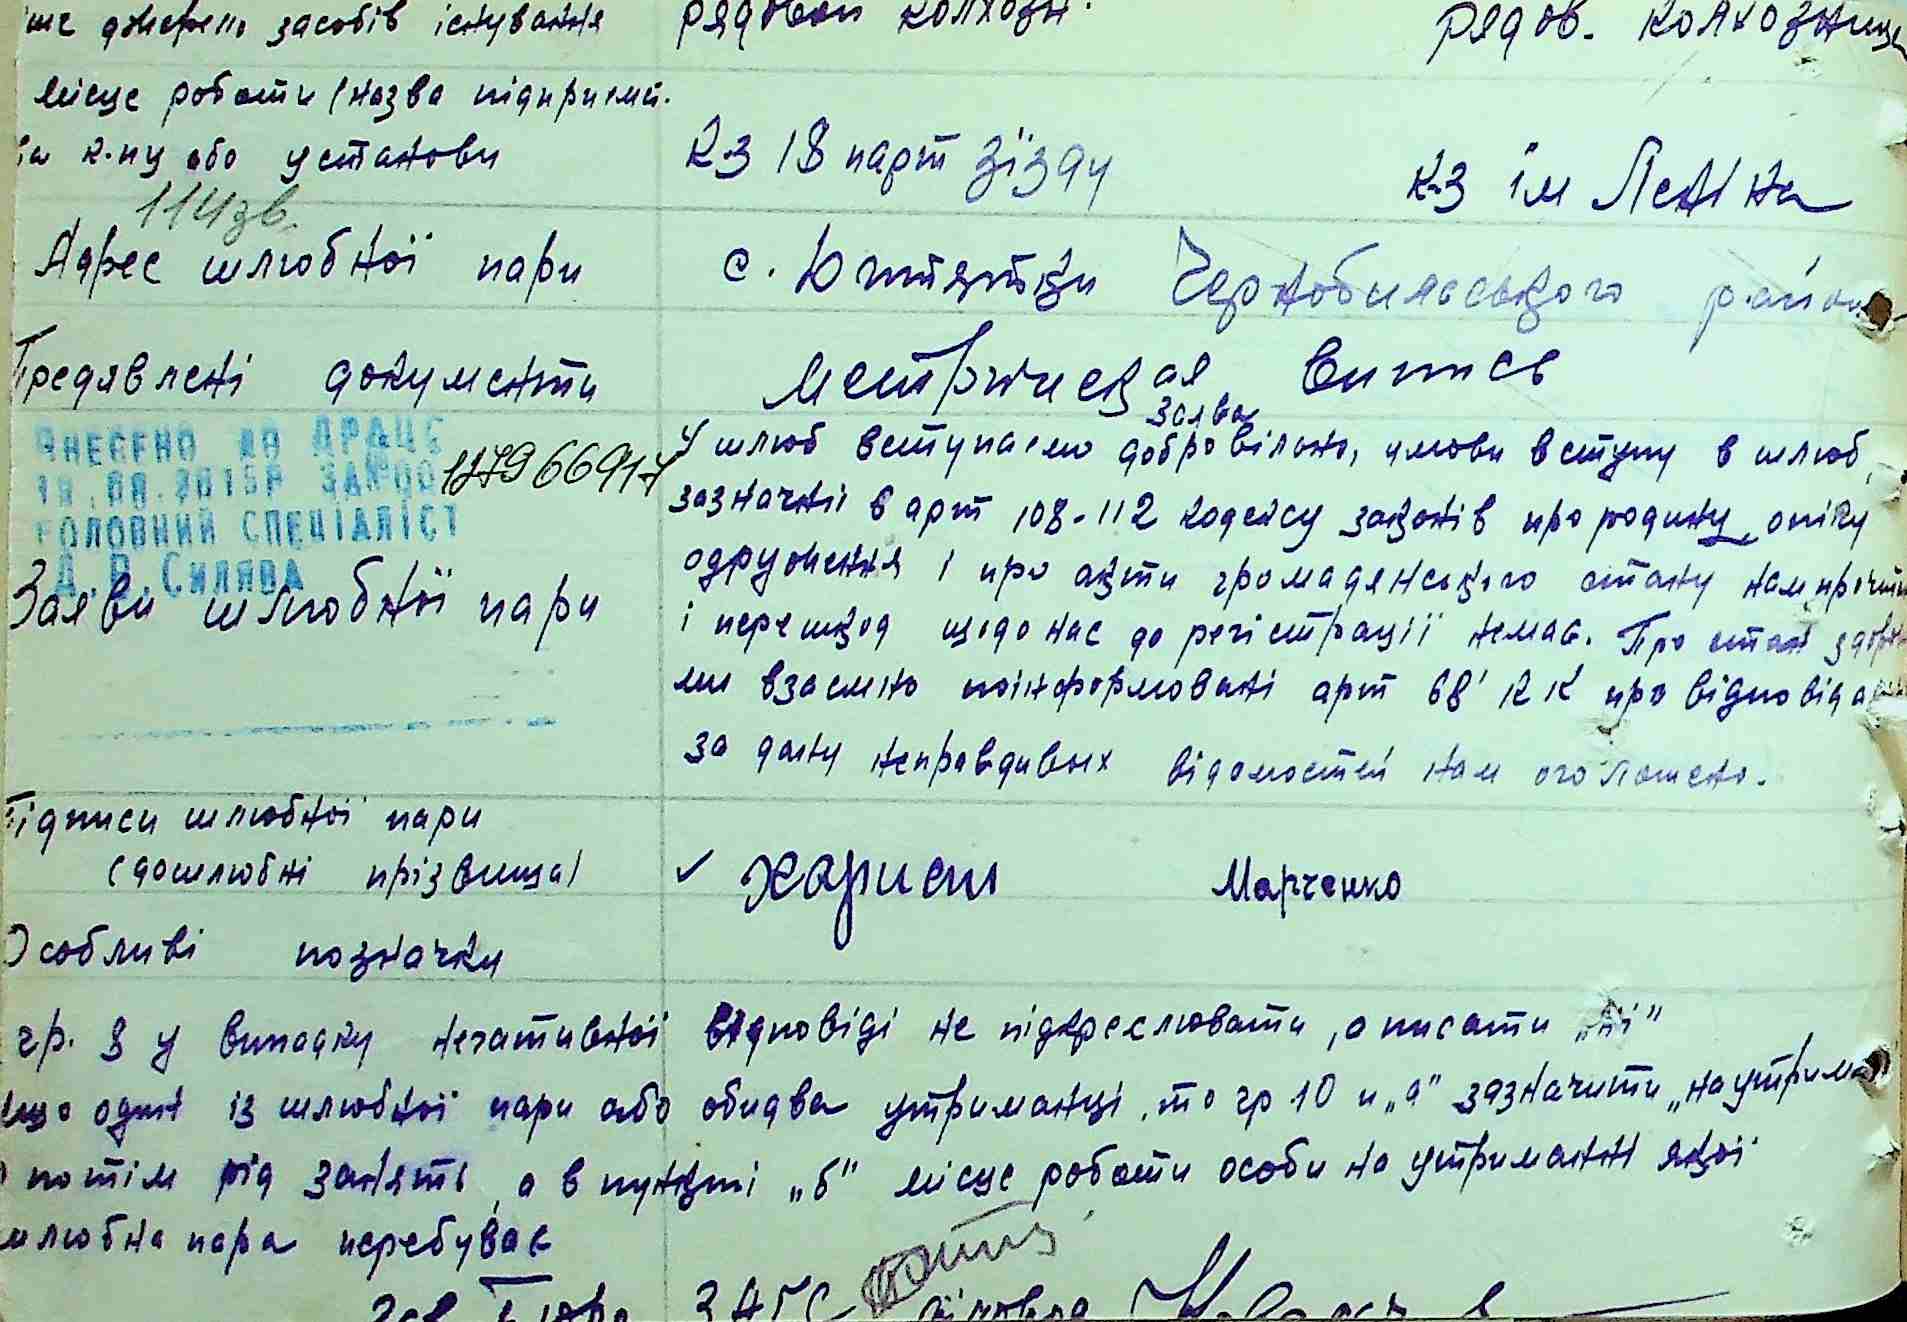 джерело засобів існування рядовой колхозн. рядов. колхозница
місце роботи (назва підприємст.
к-пу або установи К-З 18 парт зїзду К-З ім Леніна
114зв.
Адрес шлюбної пари с. Юттятки Чернобильського район
Предявлені документи метрическая випись
заява
ВНЕСЕНО ДО ДРАЦС
ЗА №00 117966917
ГОЛОВНИЙ СПЕЦІАЛІСТ
Д.В. Силява
Заяви шлюбної пари
У шлюб вступаємо добровільно, умови вступу в шлюб,
зазначені в арт 108-112 кодексу законів про родину, опіку
одруження і про акти громадянського стану нам прочит
і перешкод щодо нас до регістрації немає. Про стан здоров
ми взаємно поінформовані арт 68' КК про відповідал
за дачу неправдивых відомостей нам оголошено.
Підписи шлюбної пари
(дошлюбні прізвища) ✓ Харист Марченко
Особливі позначки
гр. 8 у випадку негативної відповіді не підкреслювати, а писати „ні"
що один із шлюбної пари або обидва утриманці, то гр 10 п „а" зазначити „на утрима
потім рід занять, а в пункті „б" місце роботи особи на утриманні якої
шлюбна пара перебуває
Зав. Бюро ЗАГС